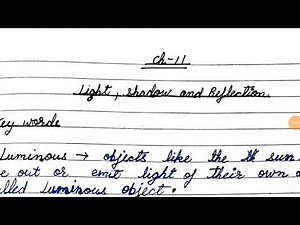 Ch-11
Light, shadow and Reflection.
Key words
Luminous → objects like the sun
out or emit light of their own
called Luminous object.